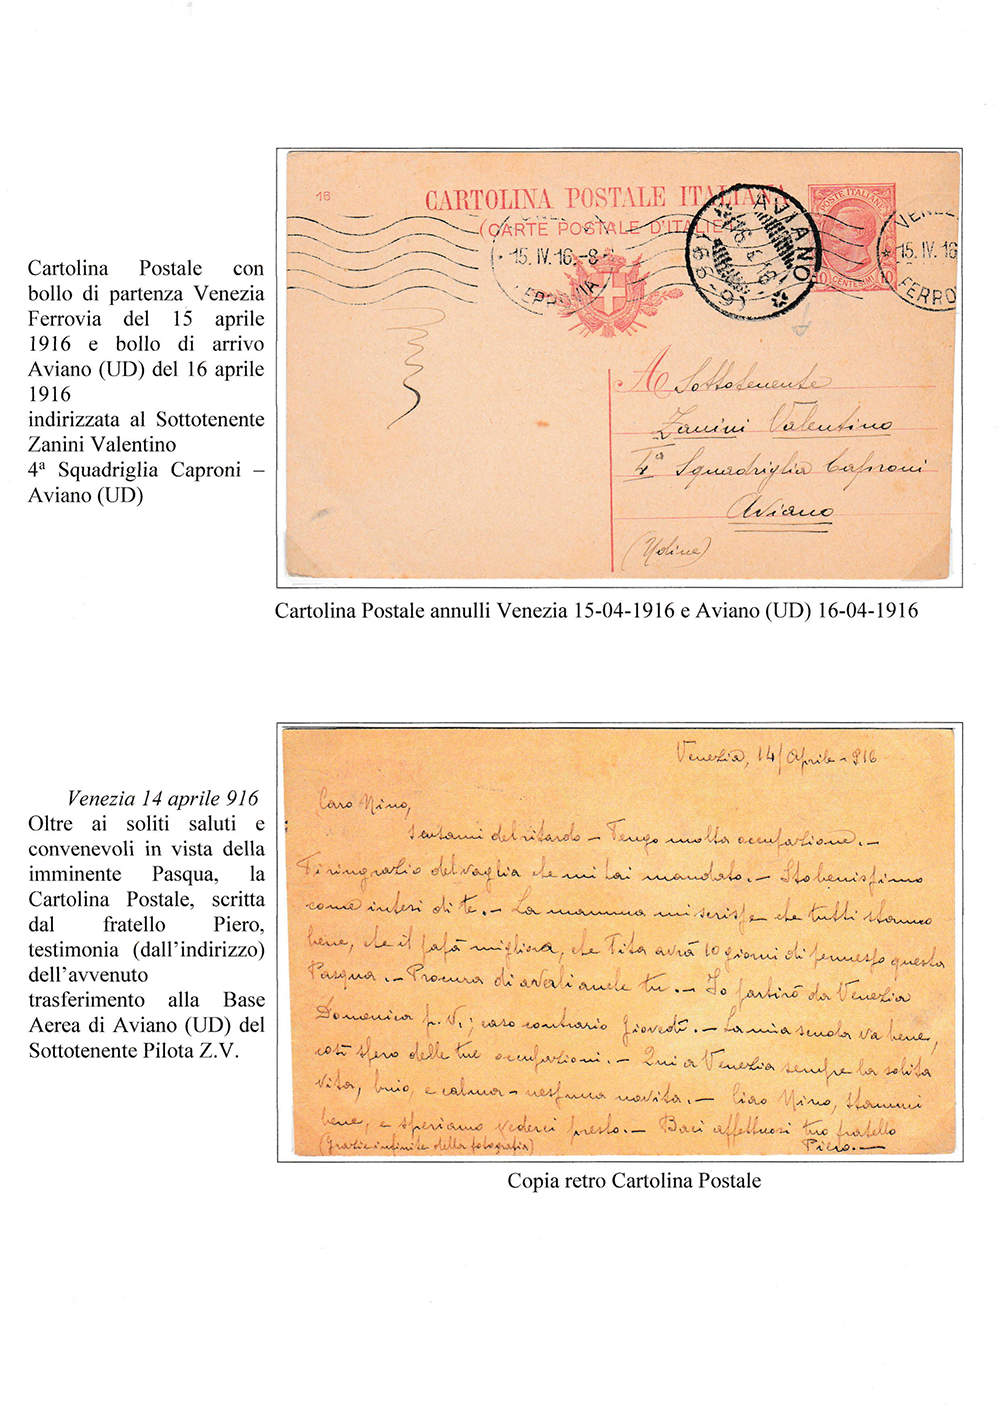 Cartolina Postale con
bollo di partenza Venezia
Ferrovia del 15 aprile
1916 e bollo di arrivo
Aviano (UD) del 16 aprile
1916
indirizzata al Sottotenente
Zanini Valentino
4ª Squadriglia Caproni –
Aviano (UD)
16
CARTOLINA POSTALE ITALIANA
(CARTE POSTALE D'ITALIE)
15.IV.16.-8
FERROVIA
AVIANO
POSTE ITALIANE
10 CENTESIMI 10
VENEZ
15.IV.16
FERRO
A Sottotenente
Zanini Valentino
4ª Squadriglia Caproni
Aviano
(Udine)
Cartolina Postale annulli Venezia 15-04-1916 e Aviano (UD) 16-04-1916
Venezia 14 aprile 916
Oltre ai soliti saluti e
convenevoli in vista della
imminente Pasqua, la
Cartolina Postale, scritta
dal fratello Piero,
testimonia (dall'indirizzo)
dell'avvenuto
trasferimento alla Base
Aerea di Aviano (UD) del
Sottotenente Pilota Z.V.
Venezia, 14/Aprile - 916
Caro Nino,
Scusami del ritardo – Tengo molta occupazione. –
Ti ringrazio del vaglia che mi hai mandato. – Sto benissimo
come intesi di te. – La mamma mi scrisse che tutti stanno
bene, che il papà migliora, che Tita avrà 10 giorni di permesso questa
Pasqua. – Procura di averli anche tu. – Io partirò da Venezia
Domenica p. V.; caso contrario Giovedì. – La mia scuola va bene,
così spero delle tue occupazioni. – Qui a Venezia sempre la solita
vita, buio, e calma – nessuna novita. – Ciao Nino, stammi
bene, e speriamo vederci presto. – Baci affettuosi tuo fratello
(Grazie infinite della fotografia) Piero. –
Copia retro Cartolina Postale